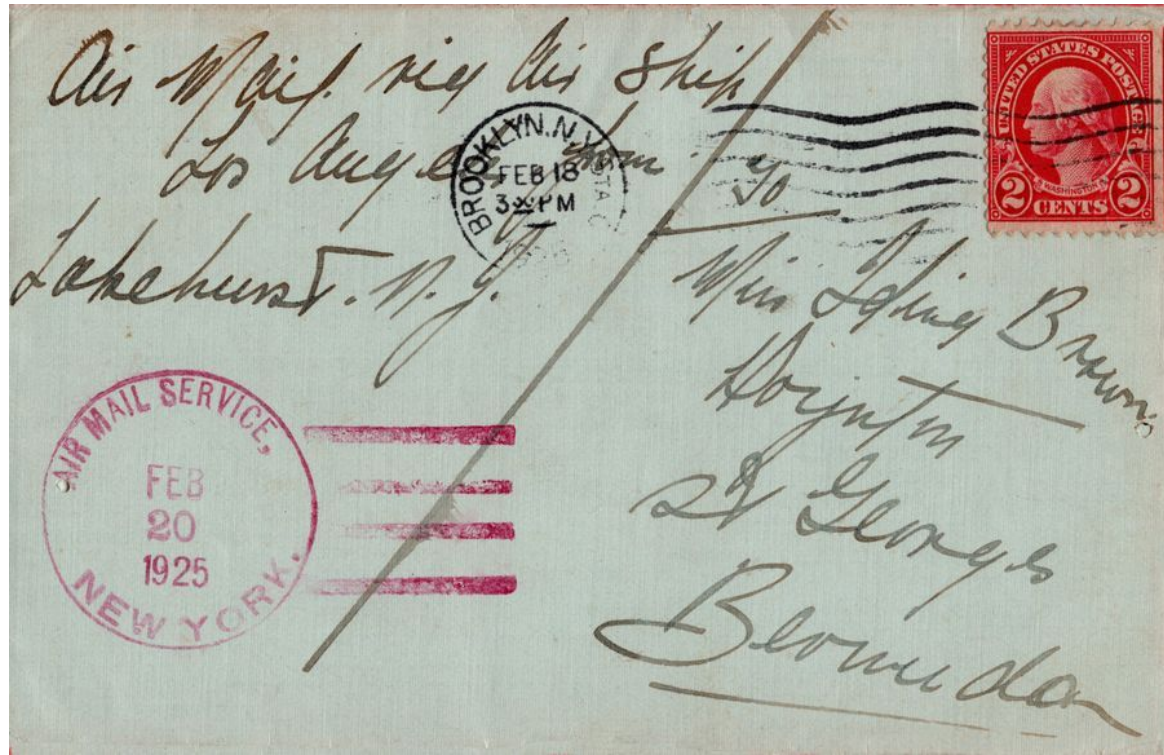 Air Mail via Air Ship
Los Angeles from
Lakehurst. N.J.
BROOKLYN. N.Y. STA. C
FEB 18
3 PM
UNITED STATES POSTAGE
WASHINGTON
2 CENTS 2
To
Miss Brown
St Georges
Bermuda
AIR MAIL SERVICE,
FEB
20
1925
NEW YORK.